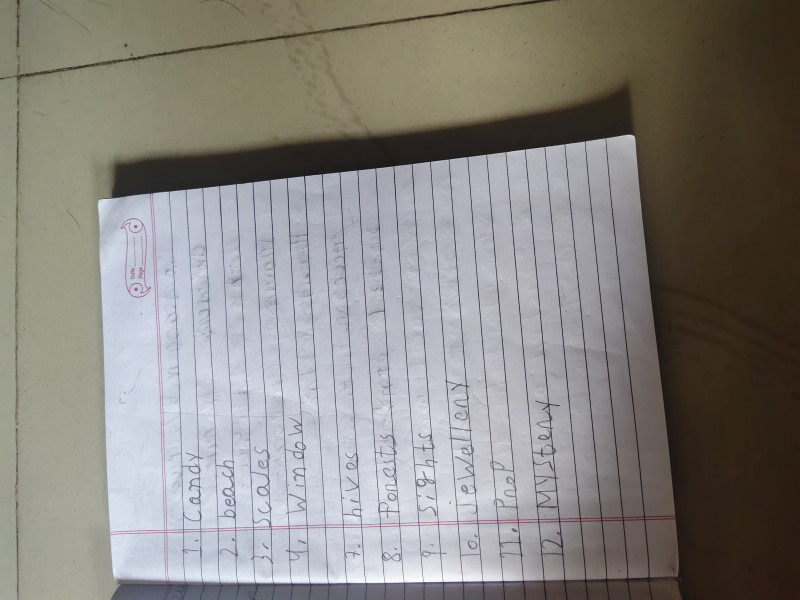 Date
Page
1. Candy
2. beach
3. Scales
4. Window
7. hives
8. Forests
9. Sights
10. Jewellery
11. Prop
12. Mystery